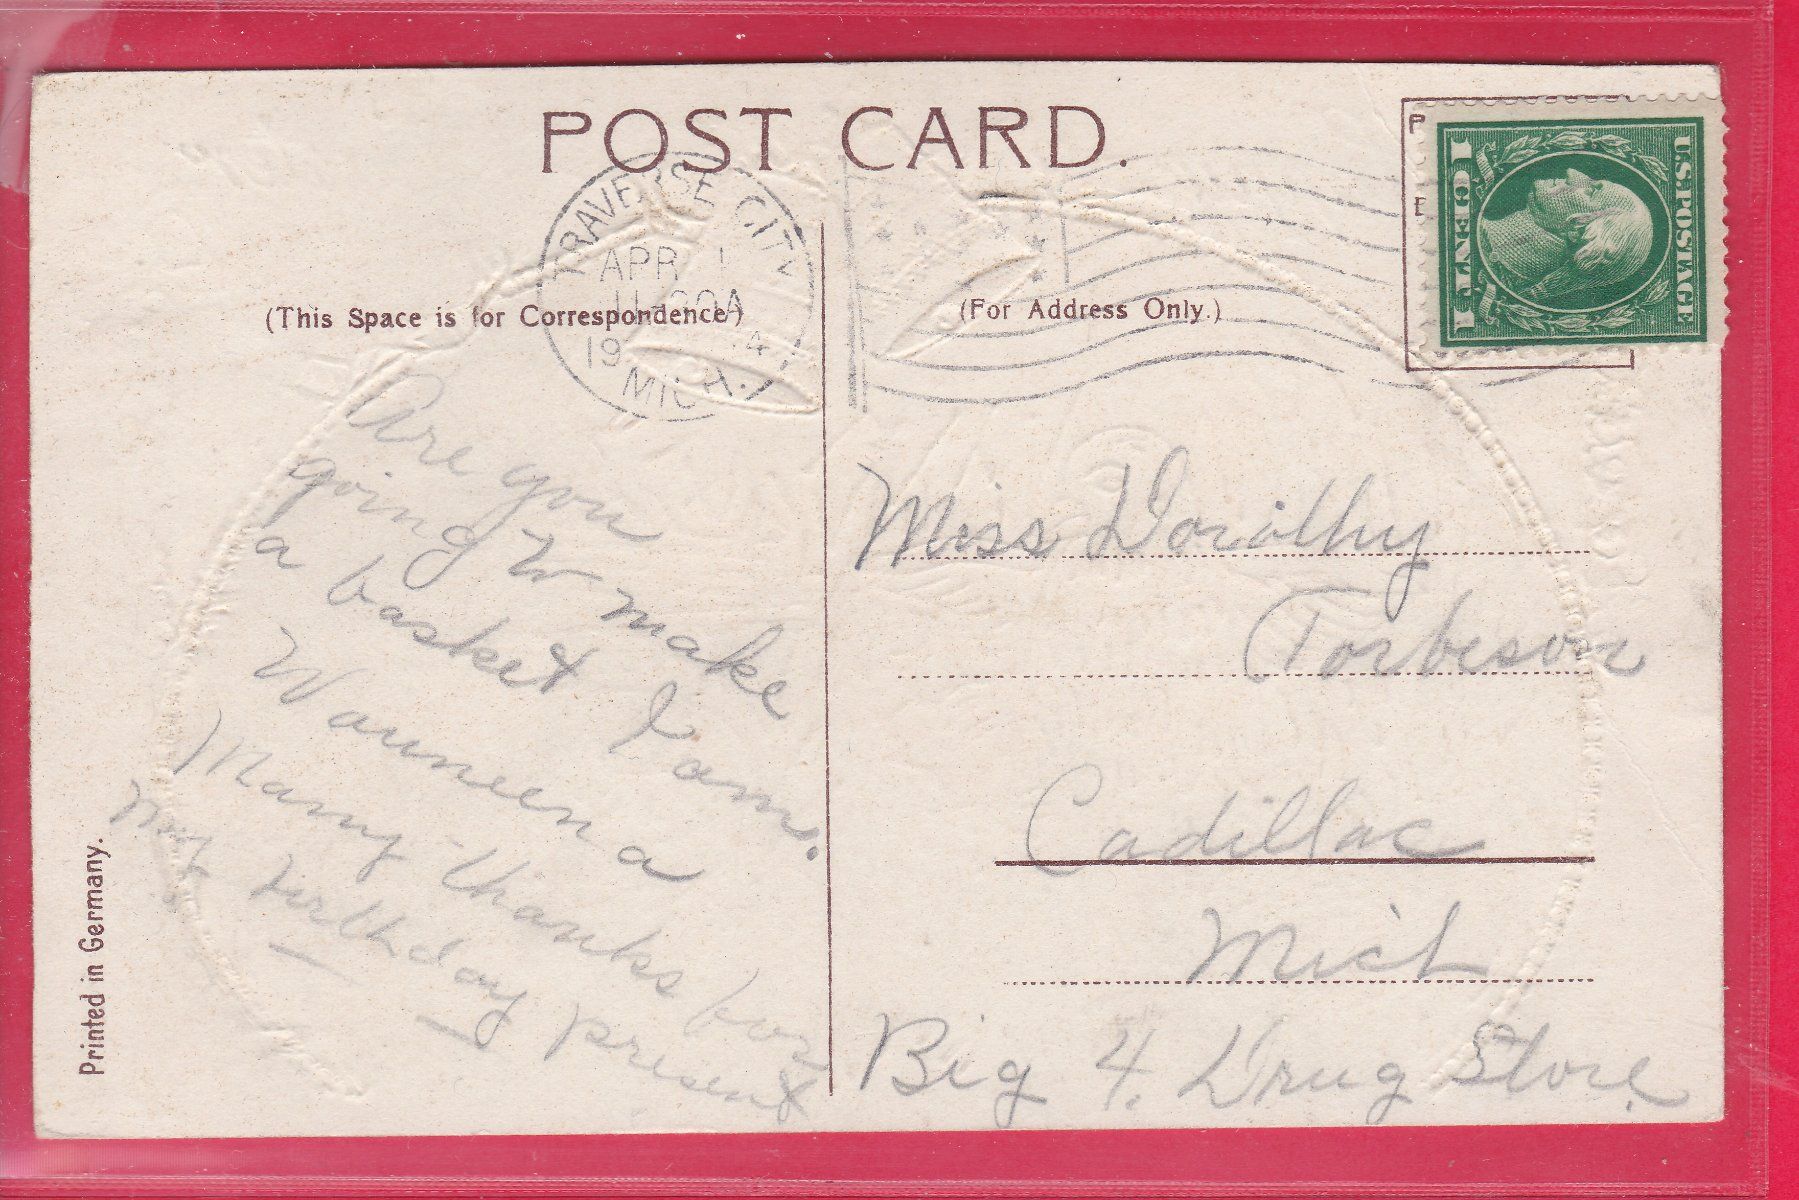 POST CARD.
TRAVERSE CITY
APR 1
11-30A
19 4
MICH.
(This Space is for Correspondence)
(For Address Only.)
P
E
U.S. POSTAGE
1 CENT 1
Are you
going to make
a basket I am.
Wauneena
Many thanks for
my birthday present
Printed in Germany.
Miss Dorothy
Torbeson
Cadillac
Mich
Big 4. Drug Store.